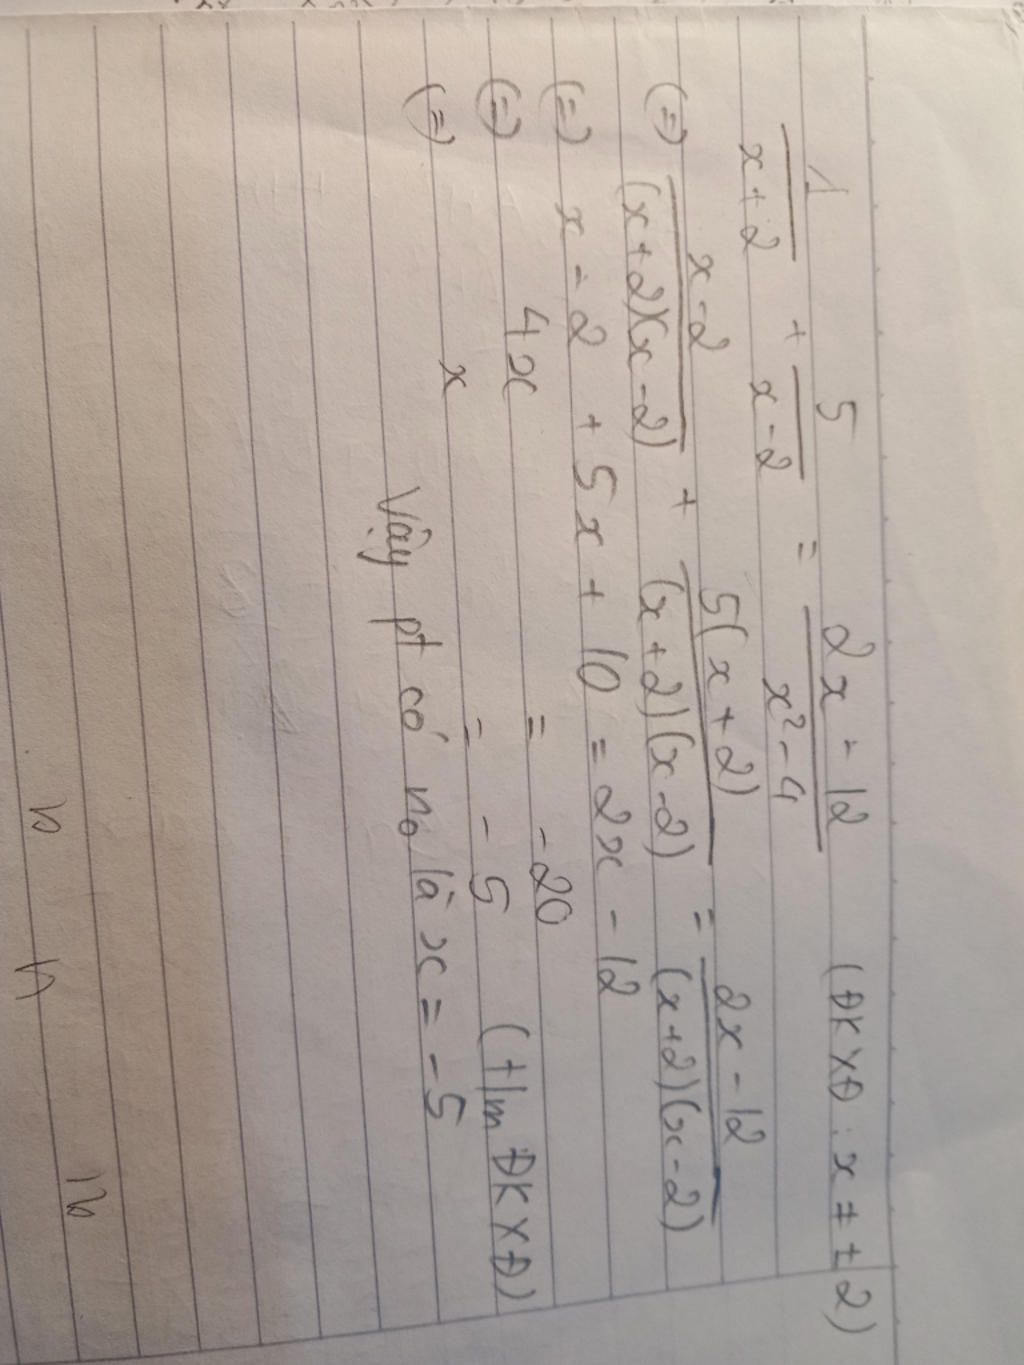 1/(x+2) + 5/(x-2) = (2x-12)/(x²-4) (ĐKXĐ: x ≠ ±2)
(=) (x-2)/((x+2)(x-2)) + 5(x+2)/((x+2)(x-2)) = (2x-12)/((x+2)(x-2))
(=) x-2 + 5x + 10 = 2x - 12
(=) 4x = -20
(=) x = -5 (t/m ĐKXĐ)
Vậy pt có no là x = -5